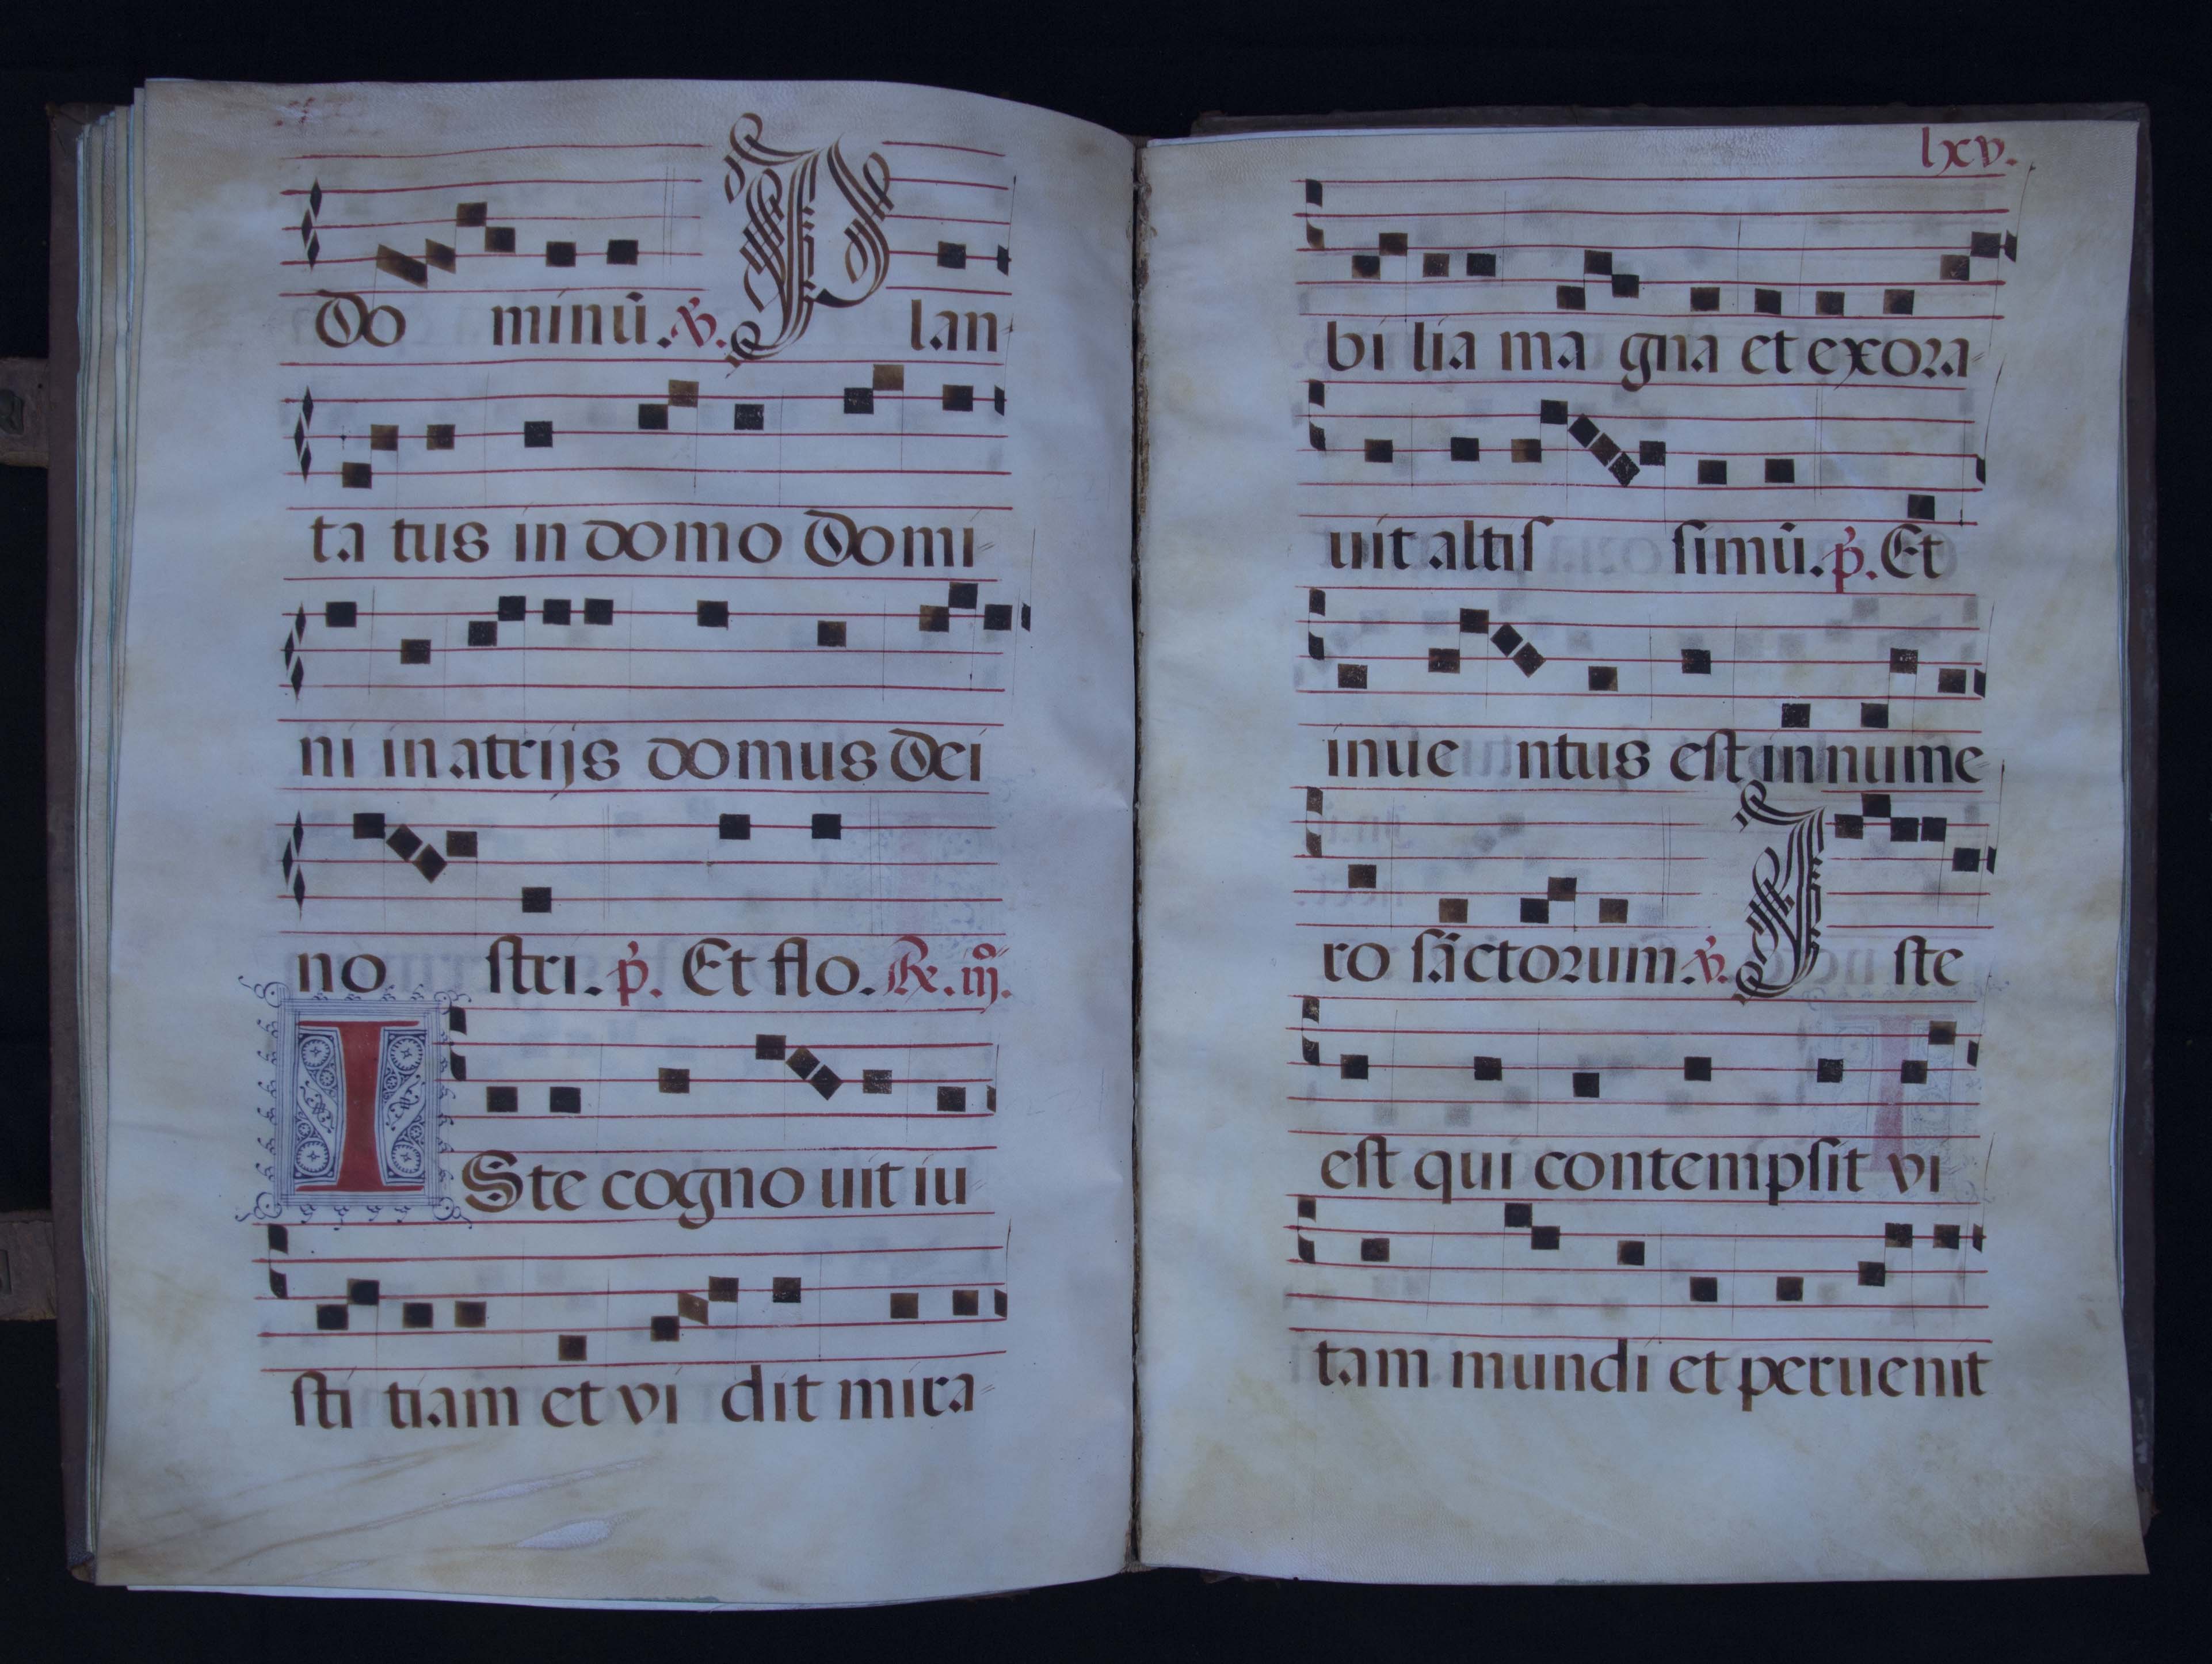 Do minū. ℣. Plan-
ta tus in domo Domi-
ni in atrijs domus Dei
no stri. p̃. Et flo. ℟. iij.
ISte cogno uit iu
sti tiam et vi dit mira-
lxv.
bi lia ma gna et exora-
uit altis simū. p̃. Et
inue ntus est in nume
ro sāctorum. ℣. I ste
est qui contempsit vi
tam mundi et peruenit